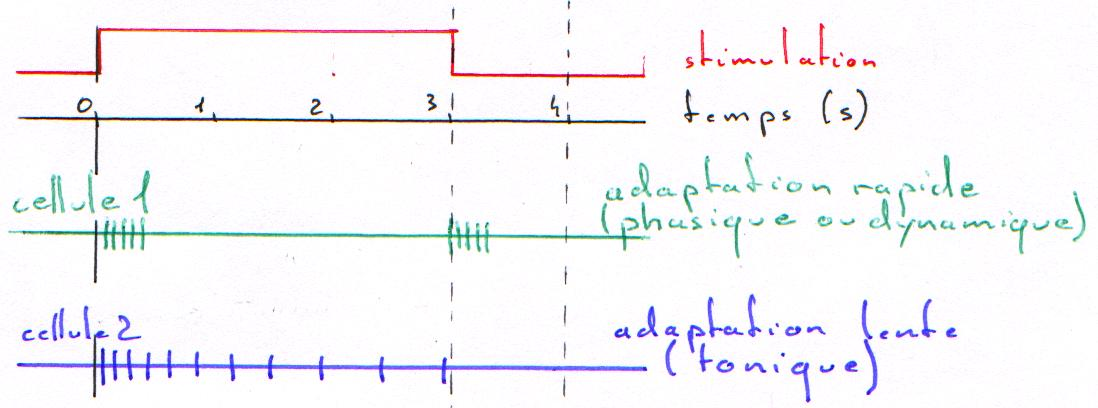 stimulation
0 1 2 3 4 temps (s)
cellule 1
adaptation rapide
(phasique ou dynamique)
cellule 2
adaptation lente
(tonique)